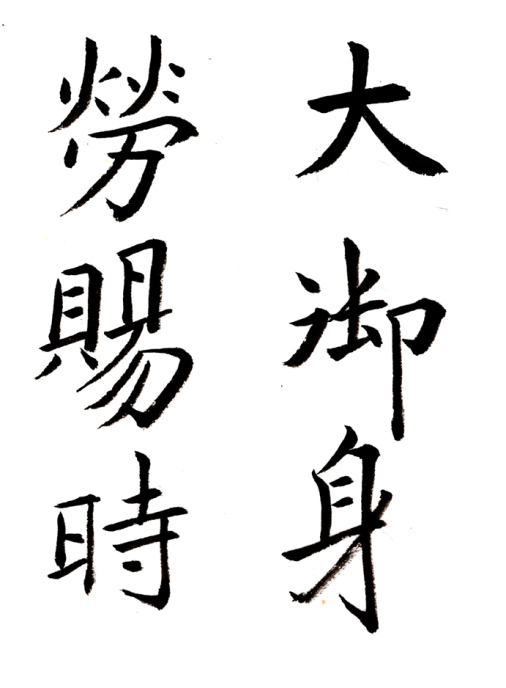 大御身
勞賜時